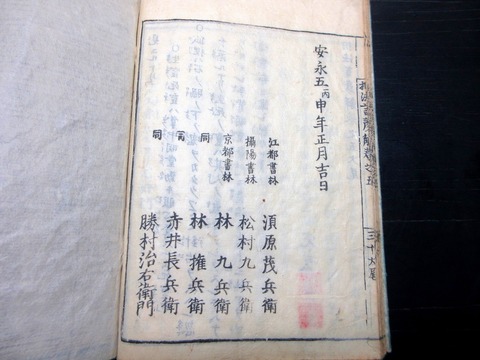 安永五丙申年正月吉日
江都書林 須原茂兵衛
攝陽書林 松村九兵衛
京都書林 林九兵衛
同 林権兵衛
同 赤井長兵衛
同 勝村治右衛門
三十大尾